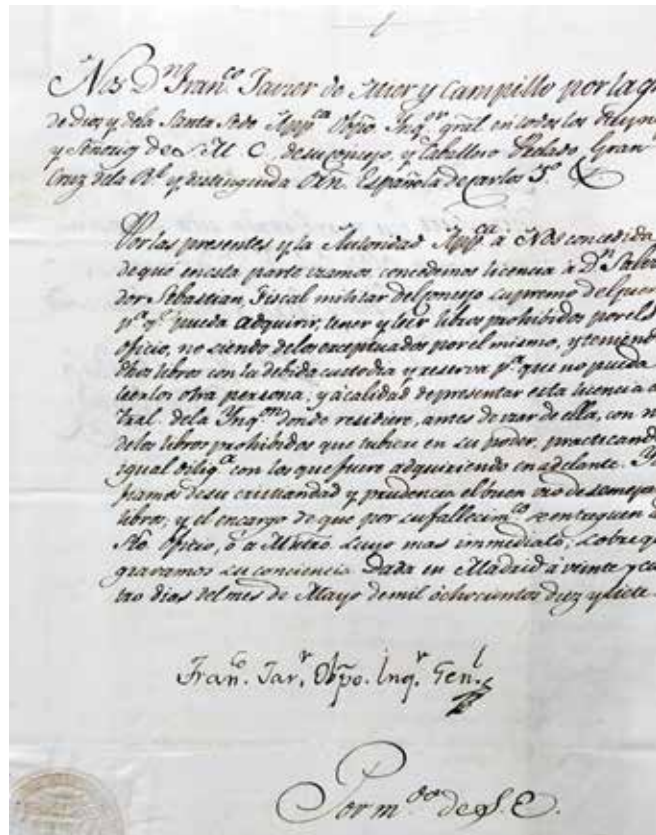 Nos Dn. Franco. Javier de Mier y Campillo por la gra
de Dios y de la Santa Sede Appca. Obpo. Inqor. gral en todos los Reyno
y Señorios de S. M. C. de su consejo, y Caballero Prelado Gran
Cruz de la Rl. y distinguida Orn. Española de Carlos 3º. &
Por las presentes y la Autoridad Appca. a Nos concedida
de que en esta parte usamos, concedemos licencia à Dn. Salva
dor Sebastian, Fiscal militar del consejo supremo de Guer
pa. qe. pueda adquirir, tener y leer libros prohibidos por el S
oficio, no siendo de los exceptuados por el mismo, y teniend
dhos libros con la debida custodia y reserva pa. que no pueda
leerlos otra persona, y á calidad de presentar esta licencia a
tral. de la Inqon. donde residiere, antes de usar de ella, con n
de los libros prohibidos que tubiere en su poder, practicando
igual diliga. con los que fuere adquiriendo en adelante. Y
fiamos de su cristiandad y prudencia el buen uso de semeja
libros, y el encargo de que por su fallecimto. se entreguen a
Sto. Oficio, ó a Mntro. suyo mas immediato, sobre q
gravamos su conciencia. Dada en Madrid a veinte y cu
tro dias del mes de Mayo de mil ochocientos diez y siete
Franco. Javr. Obpo. Inqr. Genl.
Por mdo. de S. E.